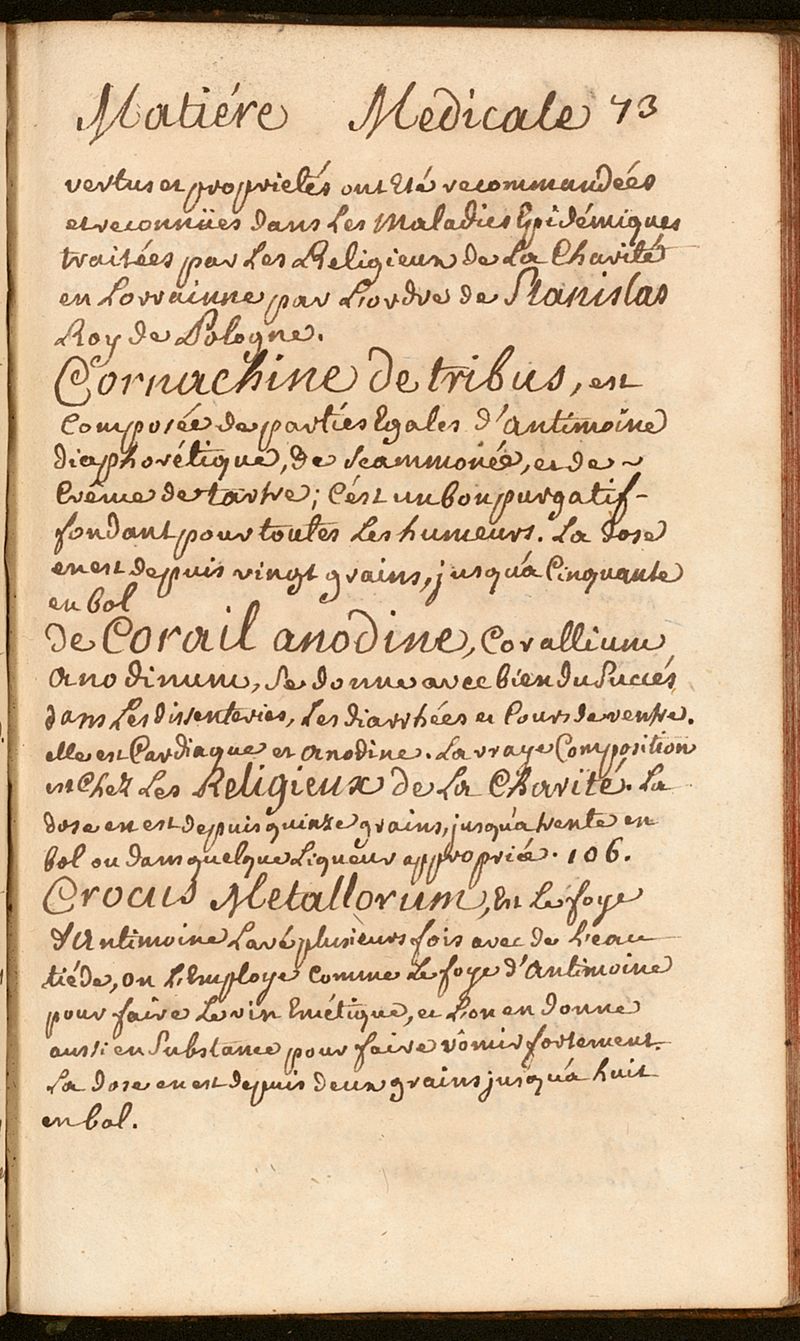 Matiére Medicale 73
vertus et proprietés ont Eté recommandées
et reconnües dans Les Maladies Epidémiques
traitées par Les Religieux de La Charité
en Lorrainne par L'ordre de Stanislas
Roy de Pologne.
Cornachine de tribus, est
Composée de parties Egales d'Antimoine
diaphorétique, de scammonée, et de ~
Crême de tartre; C'est un bon purgatif-
fondant pour toutes Les humeurs. La dose
en est depuis vingt grains, jusqu'a Cinquante
en bol
de Corail anodine, Corallium
Anodinum, se donne avec bien du Succés
dans Les dissenteries, Les diarrhées et Cours de ventre.
elle est Cardiaque et Anodine. La vraye Composition
est Chez Les Religieux de La Charité. La
dose en est depuis quinze grains, jusqu'a trente en
bol ou dans quelque Liqueur appropriée. 106.
Crocus Metallorum, Est Le foye
d'Antimoine Lavé plusieurs fois avec de L'eau
tiéde, on L'Employe Comme Le foye d'Antimoine
pour faire Le vin Emétique, et L'on en donne
aussi en Substance pour faire vômir fortement.
La dose en est depuis deux grains jusqu'a huit
en bol.